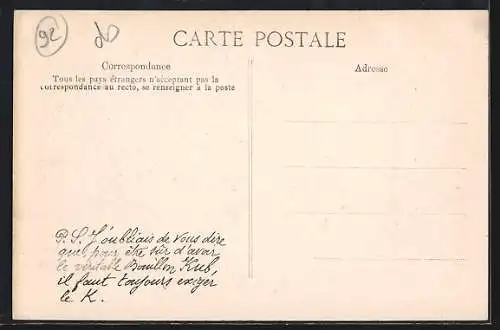 92
CARTE POSTALE
Correspondance
Tous les pays étrangers n'acceptant pas la
correspondance au recto, se renseigner à la poste
Adresse
P. S. J'oubliais de vous dire
que, pour être sûr d'avoir
le véritable Bouillon Kub,
il faut toujours exiger
le K.